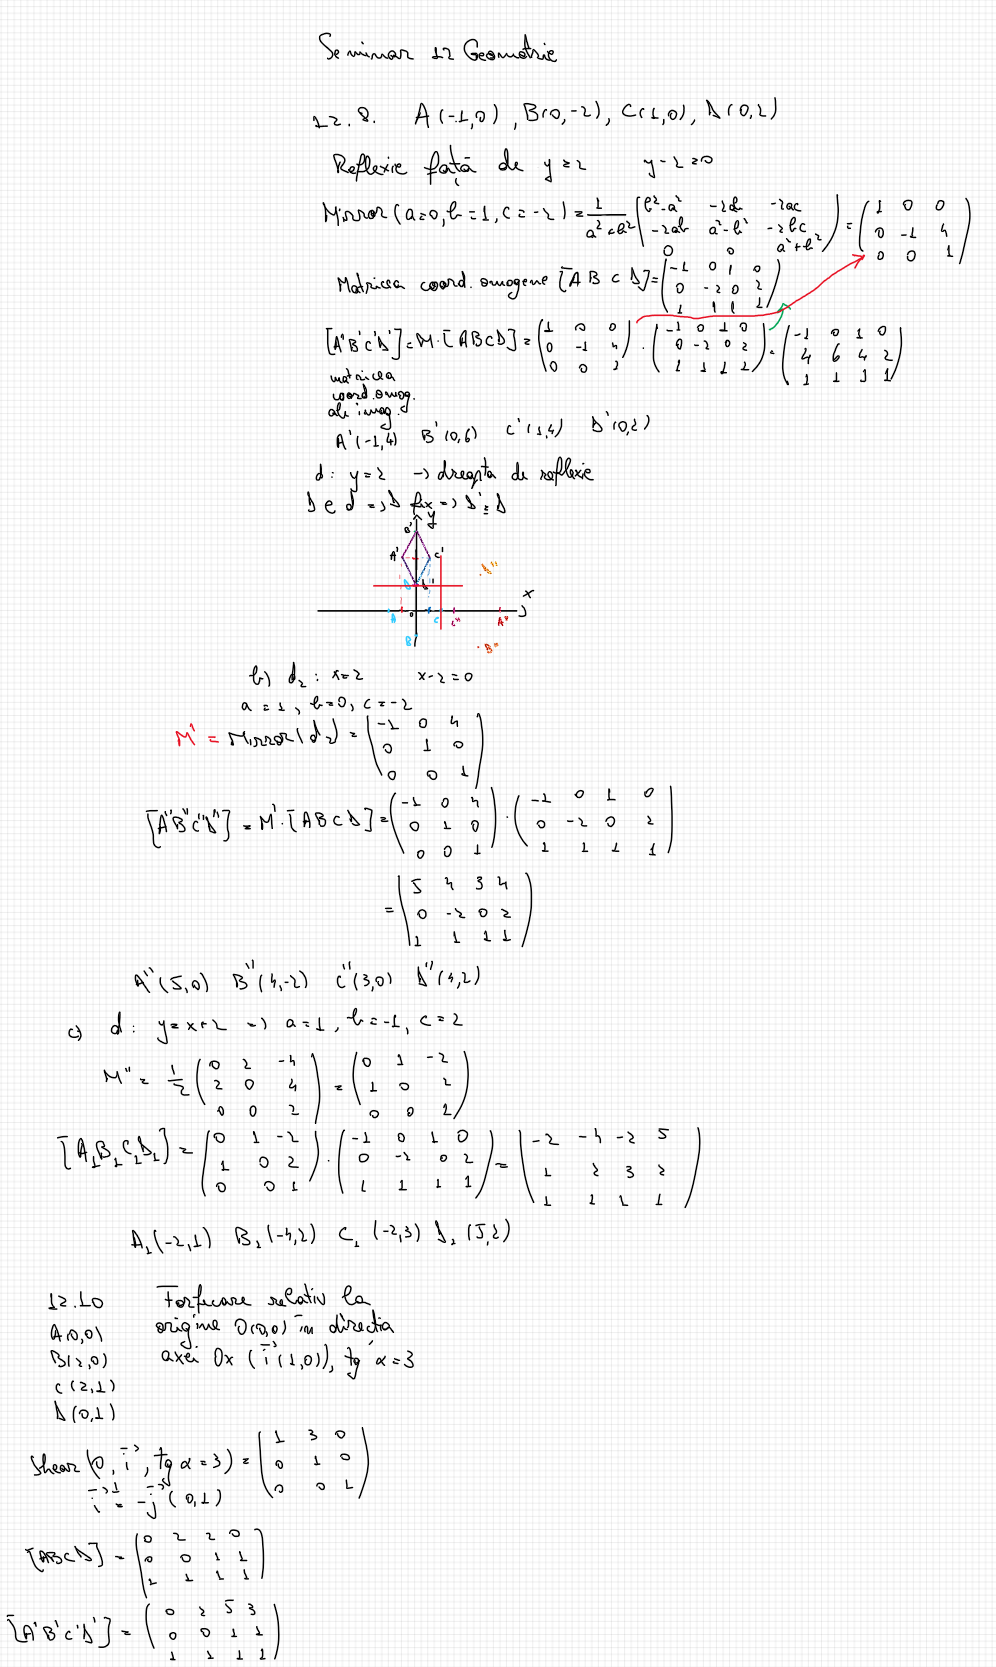 Seminar 12 Geometrie
12.8. A(-1,0), B(0,-2), C(1,0), D(0,2)
Reflexie față de y=2 y-2=0
Mirror(a=0, b=1, c=-2) = 1/(a²+b²) (b²-a² -2ab -2ac; -2ab a²-b² -2bc; 0 0 a²+b²) = (1 0 0; 0 -1 4; 0 0 1)
Matricea coord. omogene [A B C D] = (-1 0 1 0; 0 -2 0 2; 1 1 1 1)
[A'B'C'D'] = M·[ABCD] = (1 0 0; 0 -1 4; 0 0 1) · (-1 0 1 0; 0 -2 0 2; 1 1 1 1) = (-1 0 1 0; 4 6 4 2; 1 1 1 1)
matricea
coord. omog.
ale imag.
A'(-1,4) B'(0,6) C'(1,4) D'(0,2)
d: y=2 -> dreapta de reflexie
D∈d => D fix => D'=D
y
B'
A' C'
D D'
D''
x
A 0 C C'' A''
B B''
b) d₂: x=2 x-2=0
a=1, b=0, c=-2
M' = Mirror(d₂) = (-1 0 4; 0 1 0; 0 0 1)
[A''B''C''D''] = M'·[ABCD] = (-1 0 4; 0 1 0; 0 0 1) · (-1 0 1 0; 0 -2 0 2; 1 1 1 1)
= (5 4 3 4; 0 -2 0 2; 1 1 1 1)
A''(5,0) B''(4,-2) C''(3,0) D''(4,2)
c) d: y=x+2 => a=1, b=-1, c=2
M'' = 1/2 (0 2 -4; 2 0 4; 0 0 2) = (0 1 -2; 1 0 2; 0 0 1)
[A₁B₁C₁D₁] = (0 1 -2; 1 0 2; 0 0 1) · (-1 0 1 0; 0 -2 0 2; 1 1 1 1) = (-2 -4 -2 5; 1 2 3 2; 1 1 1 1)
A₁(-2,1) B₁(-4,2) C₁(-2,3) D₁(5,2)
12.10 Forfecare relativ la
A(0,0) origine O(0,0) în direcția
B(2,0) axei Ox (i(1,0)), tg α=3
C(2,1)
D(0,1)
Shear(O, i, tg α=3) = (1 3 0; 0 1 0; 0 0 1)
i⊥ = j(0,1)
[ABCD] = (0 2 2 0; 0 0 1 1; 1 1 1 1)
[A'B'C'D'] = (0 2 5 3; 0 0 1 1; 1 1 1 1)